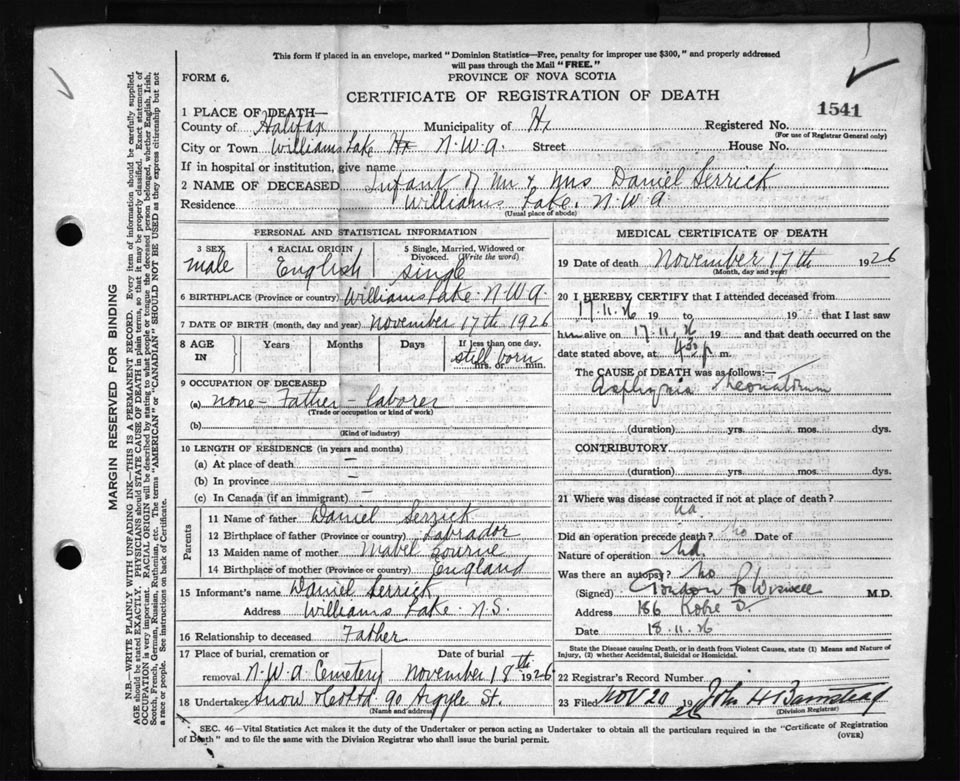 This form if placed in an envelope, marked "Dominion Statistics—Free, penalty for improper use $300," and properly addressed
will pass through the Mail "FREE."
FORM 6.
PROVINCE OF NOVA SCOTIA
CERTIFICATE OF REGISTRATION OF DEATH
1541
1 PLACE OF DEATH—
County of Halifax Municipality of Hx Registered No.
(For use of Registrar General only)
City or Town Williams Lake Hx N.W.A. Street House No.
If in hospital or institution, give name
2 NAME OF DECEASED Infant of Mr & Mrs Daniel Serrick
Residence Williams Lake. N.W.A
(Usual place of abode)
PERSONAL AND STATISTICAL INFORMATION
3 SEX 4 RACIAL ORIGIN 5 Single, Married, Widowed or Divorced. (Write the word)
male English single
6 BIRTHPLACE (Province or country) Williams Lake. N.W.A
7 DATE OF BIRTH (month, day and year) November 17th 1926
8 AGE IN Years Months Days If less than one day, still born hrs. or min.
9 OCCUPATION OF DECEASED
(a) none - Father - laborer
(Trade or occupation or kind of work)
(b)
(Kind of industry)
10 LENGTH OF RESIDENCE (in years and months)
(a) At place of death —
(b) In province —
(c) In Canada (if an immigrant) —
Parents
11 Name of father Daniel Serrick
12 Birthplace of father (Province or country) Labrador
13 Maiden name of mother Mabel Bourne
14 Birthplace of mother (Province or country) England
15 Informant's name Daniel Serrick
Address Williams Lake. N.S.
16 Relationship to deceased Father
17 Place of burial, cremation or removal N.W.A. Cemetery Date of burial November 18th 1926
18 Undertaker Snow & Co Ltd 90 Argyle St.
(Name and address)
MEDICAL CERTIFICATE OF DEATH
19 Date of death November 17th 1926
(Month, day and year)
20 I HEREBY CERTIFY that I attended deceased from
17.11.26 19 to 19 that I last saw
him alive on 17.11.26 19 and that death occurred on
date stated above, at 4 30 p m.
The CAUSE OF DEATH was as follows:—
Asphyxia Neonatorum
(duration) yrs. mos. dys.
CONTRIBUTORY
(duration) yrs. mos. dys.
21 Where was disease contracted if not at place of death?
Did an operation precede death? No Date of
Nature of operation
Was there an autopsy? No
(Signed) Gordon B Wiswell M.D.
Address 186 Robie St
Date 18.11.26
State the Disease causing Death, or in death from Violent Causes, state (1) Means and Nature of Injury, (2) whether Accidental, Suicidal or Homicidal.
22 Registrar's Record Number
23 Filed Nov 20 1926 John H Barnstead
(Division Registrar)
SEC. 46—Vital Statistics Act makes it the duty of the Undertaker or person acting as Undertaker to obtain all the particulars required in the "Certificate of Registration
of Death" and to file the same with the Division Registrar who shall issue the burial permit. (OVER)
MARGIN RESERVED FOR BINDING
N.B.—WRITE PLAINLY WITH UNFADING INK—THIS IS A PERMANENT RECORD. Every item of information should be carefully supplied.
AGE should be stated EXACTLY. PHYSICIANS should STATE CAUSE OF DEATH in plain terms, so that it may be properly classified. Exact statement of
OCCUPATION is very important. RACIAL ORIGIN will be described by stating to what people or tongue the deceased person belonged, whether English, Irish,
Scotch, French, German, Russian, Ruthenian, etc. The terms "AMERICAN" or "CANADIAN" SHOULD NOT BE USED as they express citizenship but not
a race or people. See instructions on back of Certificate.